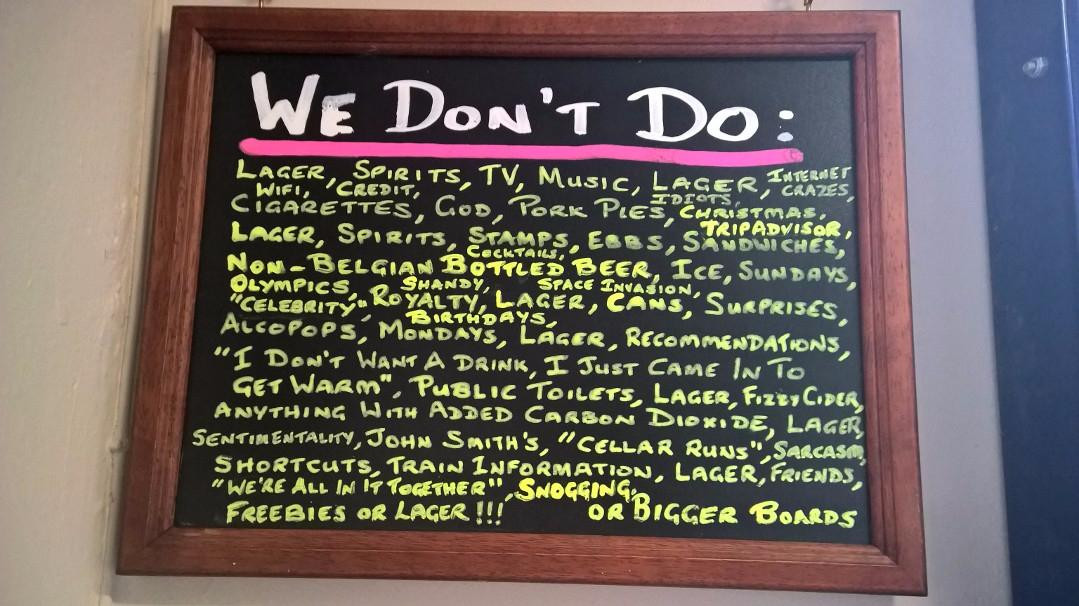 WE DON'T DO:
LAGER, SPIRITS, TV, MUSIC, LAGER, INTERNET CRAZES,
WIFI, CREDIT, IDIOTS,
CIGARETTES, GOD, PORK PIES, CHRISTMAS,
TRIPADVISOR,
LAGER, SPIRITS, STAMPS, EBBS, SANDWICHES,
COCKTAILS,
NON-BELGIAN BOTTLED BEER, ICE, SUNDAYS,
OLYMPICS, SHANDY, SPACE INVASION,
"CELEBRITY", ROYALTY, LAGER, CANS, SURPRISES,
BIRTHDAYS,
ALCOPOPS, MONDAYS, LAGER, RECOMMENDATIONS,
"I DON'T WANT A DRINK, I JUST CAME IN TO
GET WARM", PUBLIC TOILETS, LAGER, FIZZY CIDER,
ANYTHING WITH ADDED CARBON DIOXIDE, LAGER,
SENTIMENTALITY, JOHN SMITH'S, "CELLAR RUNS", SARCASM,
SHORTCUTS, TRAIN INFORMATION, LAGER, FRIENDS,
"WE'RE ALL IN IT TOGETHER", SNOGGING,
FREEBIES OR LAGER!!! OR BIGGER BOARDS